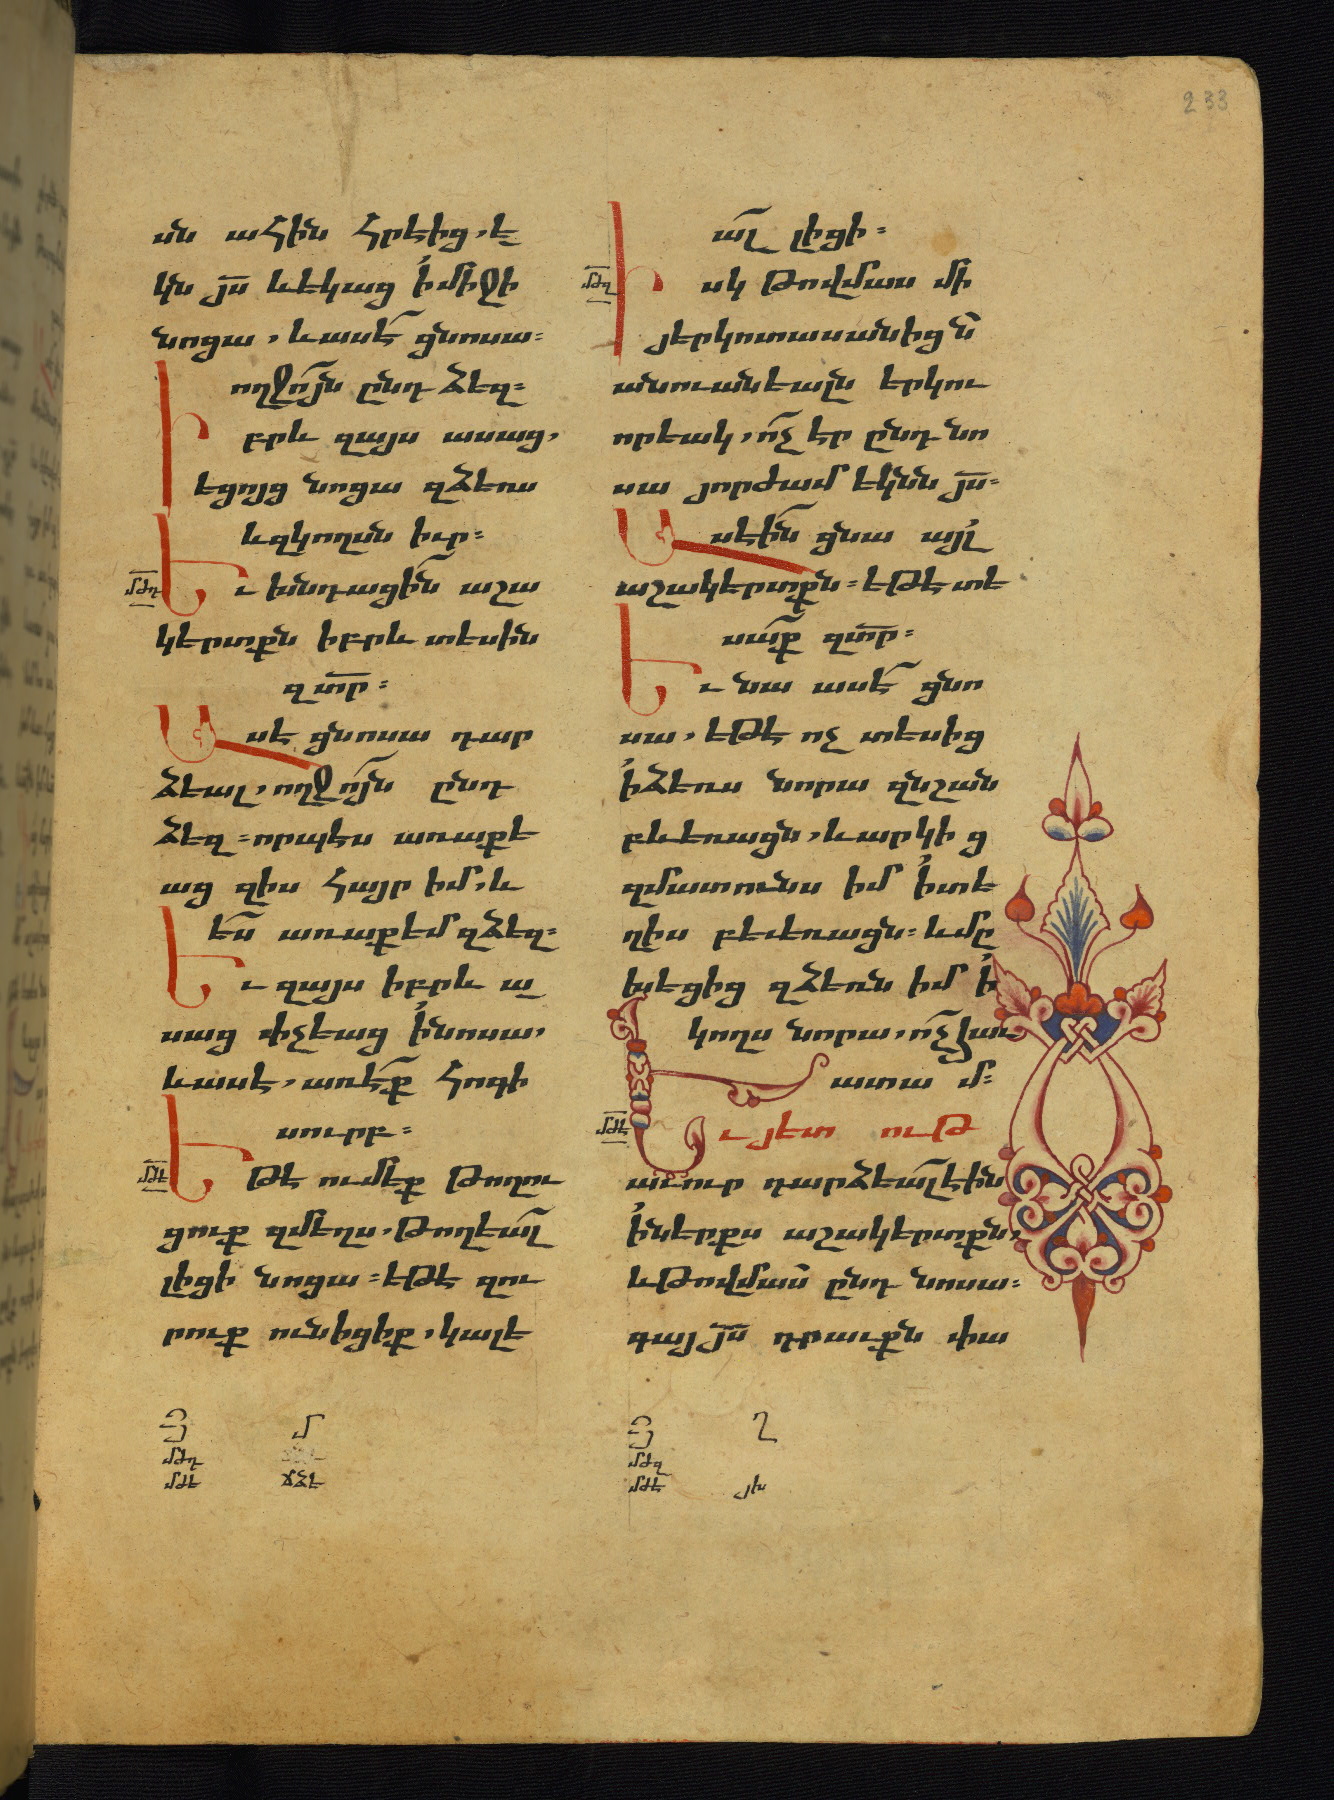 233
սն ահին հրէից, ե
կն յս ևեկաց ի միջի
նոցա, ևասէ ցնոսա։
ողջոյն ընդ ձեզ։
Իբրև զայս ասաց,
եցոյց նոցա զձեռս
ևզկողսն իւր։
մժդ Եւ խնդացին աշա
կերտքն իբրև տեսին
զտր։
Ասէ ցնոսա դար
ձեալ, ողջոյն ընդ
ձեզ։ որպէս առաքե
աց զիս հայր իմ, և
ես առաքեմ զձեզ։
Եւ զայս իբրև ա
սաց փչեաց ի նոսա,
ևասէ, առէք հոգի
սուրբ։
մժե Եթէ ումեք թողու
ցուք զմեղս, թողեալ
լիցի նոցա։ եթէ զու
րուք ունիցիք, կալե
ալ լիցի։
Իսկ թովմաս մի
յերկոտասանիցն
անուանեալն երկու
որեակ, ոչ էր ընդ նո
սա յորժամ եկնն յս։
Ասեին ցնա այլ
աշակերտքն։ եթէ տե
սաք զտր։
Եւ նա ասէ ցնո
սա, եթէ ոչ տեսից
ի ձեռս նորա զնշան
բևեռացն, ևարկից
զմատունս իմ ի տե
ղիս բևեռացն։ ևմը
խեցից զձեռն իմ ի
կողս նորա, ոչ հաւ
ատամ։
մժէ Եւ յետ ութ
աւուր դարձեալ էին
ի ներքս աշակերտքն,
ևթովմաս ընդ նոսա։
գայ յս դրաւքն փա
մժդ
մժե ՃՁԷ
մժզ
մժէ